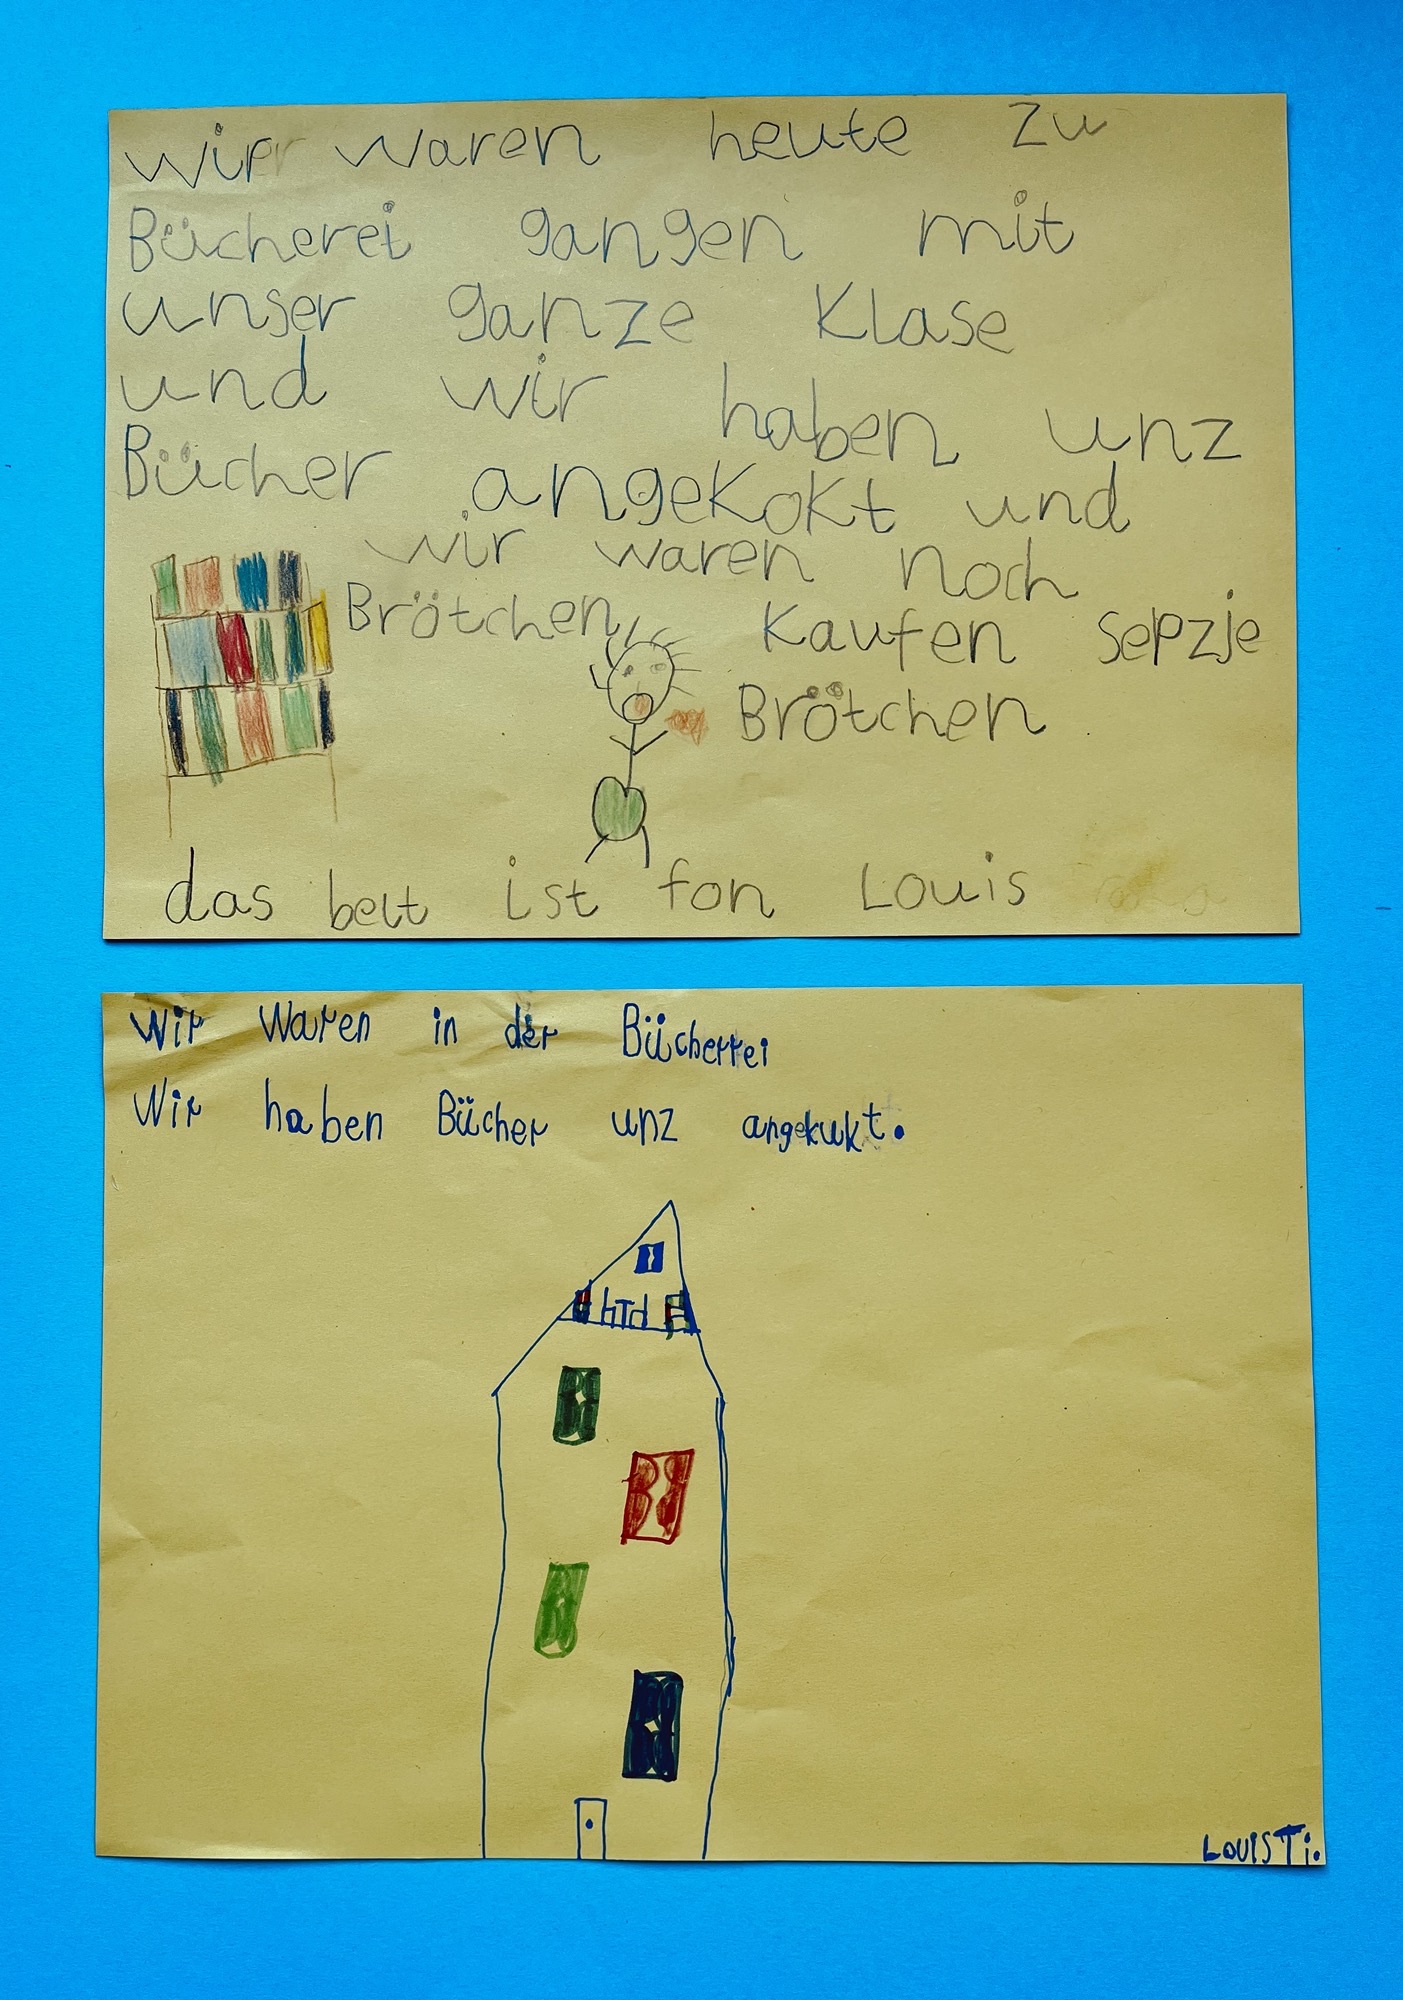 wir waren heute zu
Bücherei gangen mit
unser ganze Klase
und wir haben unz
Bücher angeKoKt und
wir waren noch
Brötchen Kaufen sepzje
Brötchen
das belt ist fon Louis
Wir Waren in der Bücherrei
Wir haben Bücher unz angekukt.
hTd
LOUIS Ti.